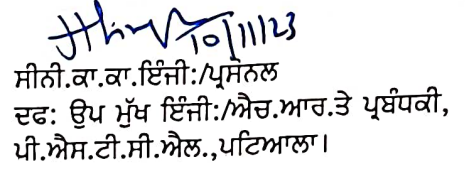 10/11/23
ਸੀਨੀ.ਕਾ.ਕਾ.ਇੰਜੀ:/ਪ੍ਰਸੋਨਲ
ਦਫ: ਉਪ ਮੁੱਖ ਇੰਜੀ:/ਐਚ.ਆਰ.ਤੇ ਪ੍ਰਬੰਧਕੀ,
ਪੀ.ਐਸ.ਟੀ.ਸੀ.ਐਲ.,ਪਟਿਆਲਾ।